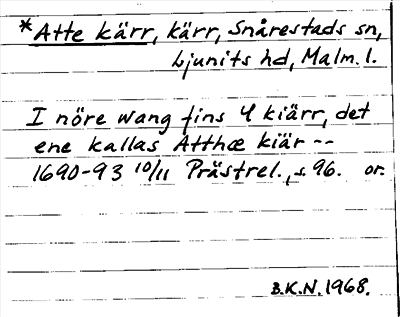 *Atte kärr, kärr, Snårestads sn,
Ljunits hd, Malm. l.
I nöre wang fins 4 kiärr, det
ene kallas Atthæ kiär --
1690-93 10/11 Prästrel., s. 96. or.
B.K.N. 1968.